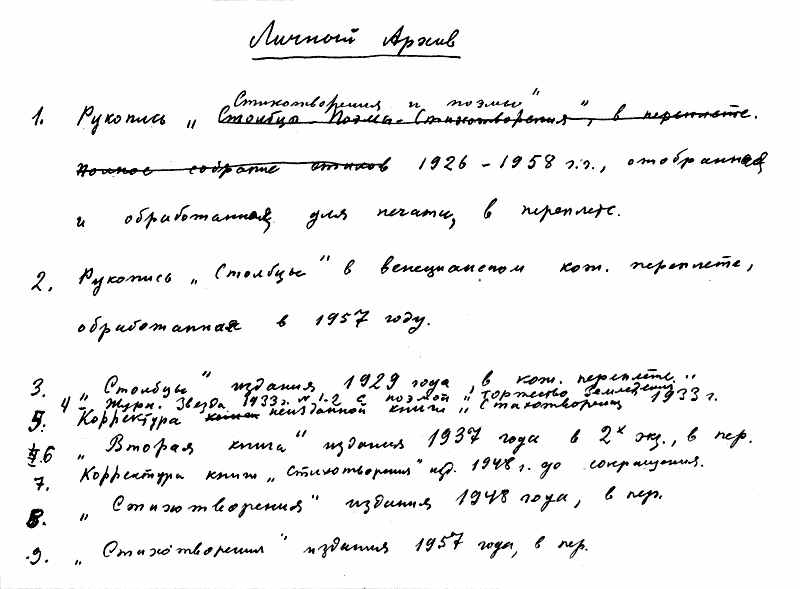 Личный Архив
Стихотворения и поэмы"
1. Рукопись „Столбцы - Поэмы - Стихотворения", в переплете.
Полное собрание стихов 1926 – 1958 г.г., отобранная
и обработанная для печати, в переплете.
2. Рукопись „Столбцы" в венецианском кож. переплете,
обработанная в 1957 году.
3. „Столбцы" издания 1929 года, в кож. переплете.
4 Журн. Звезда 1933 г. № 1-2 с поэмой „Торжество Земледелия"
5. Корректура неизданной книги „Стихотворения 1933 г.
6 „Вторая книга" издания 1937 года в 2х экз., в пер.
7. Корректура книги „Стихотворения" изд. 1948 г. до сокращения.
8. „Стихотворения" издания 1948 года, в пер.
9. „Стихотворения" издания 1957 года, в пер.